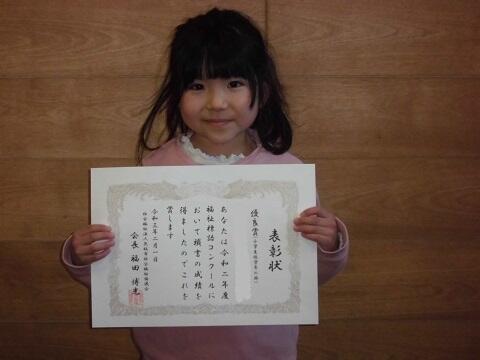 表彰状
優良賞
あなたは令和二年度
福祉標語コンクールに
おいて頭書の成績を
得ましたのでこれを
賞します
令和三年二月一日
会長 福田 博光